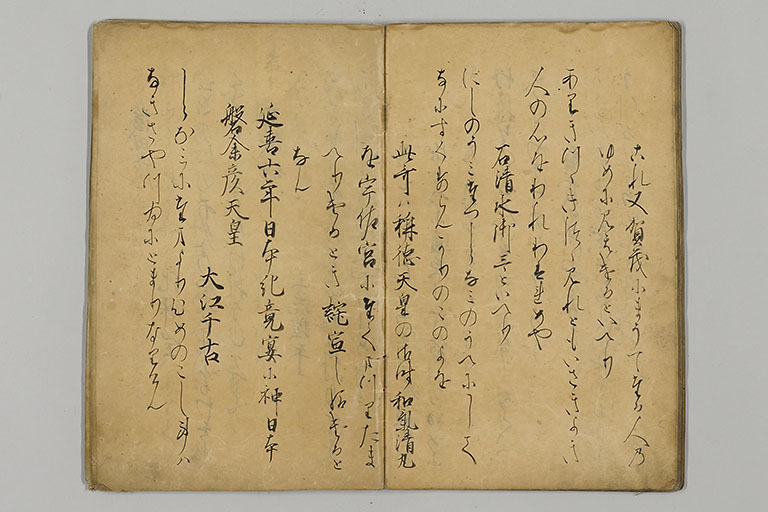 これ又賀茂にまうてたる人の
ゆめに見えけるといへり
ありきつゝきつゝ見れともいさきよき
人の心をわれわすれめや
石清水御哥といへり
にしのうみたつしらなみのうへにして
なにすくすらんかりのこのよを
此哥ハ称徳天皇の御時和気清丸
を宇佐宮にたてまつりたま
へりけるとき託宣し給けると
なん
延喜六年日本紀竟宴に神日本
磐余彦天皇
大江千古
しらなみにたまよりひめのこしことハ
なきさやつゐにとまりなりけん